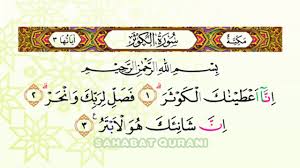 مَكِّيَّة سُوْرَةُ الْكَوْثَرِ اٰيَاتُهَا ٣
بِسْمِ اللّٰهِ الرَّحْمٰنِ الرَّحِيْمِ
اِنَّآ اَعْطَيْنٰكَ الْكَوْثَرَ ۝١ فَصَلِّ لِرَبِّكَ وَانْحَرْ ۝٢
اِنَّ شَانِئَكَ هُوَ الْاَبْتَرُ ۝٣
SAHABAT QURANI